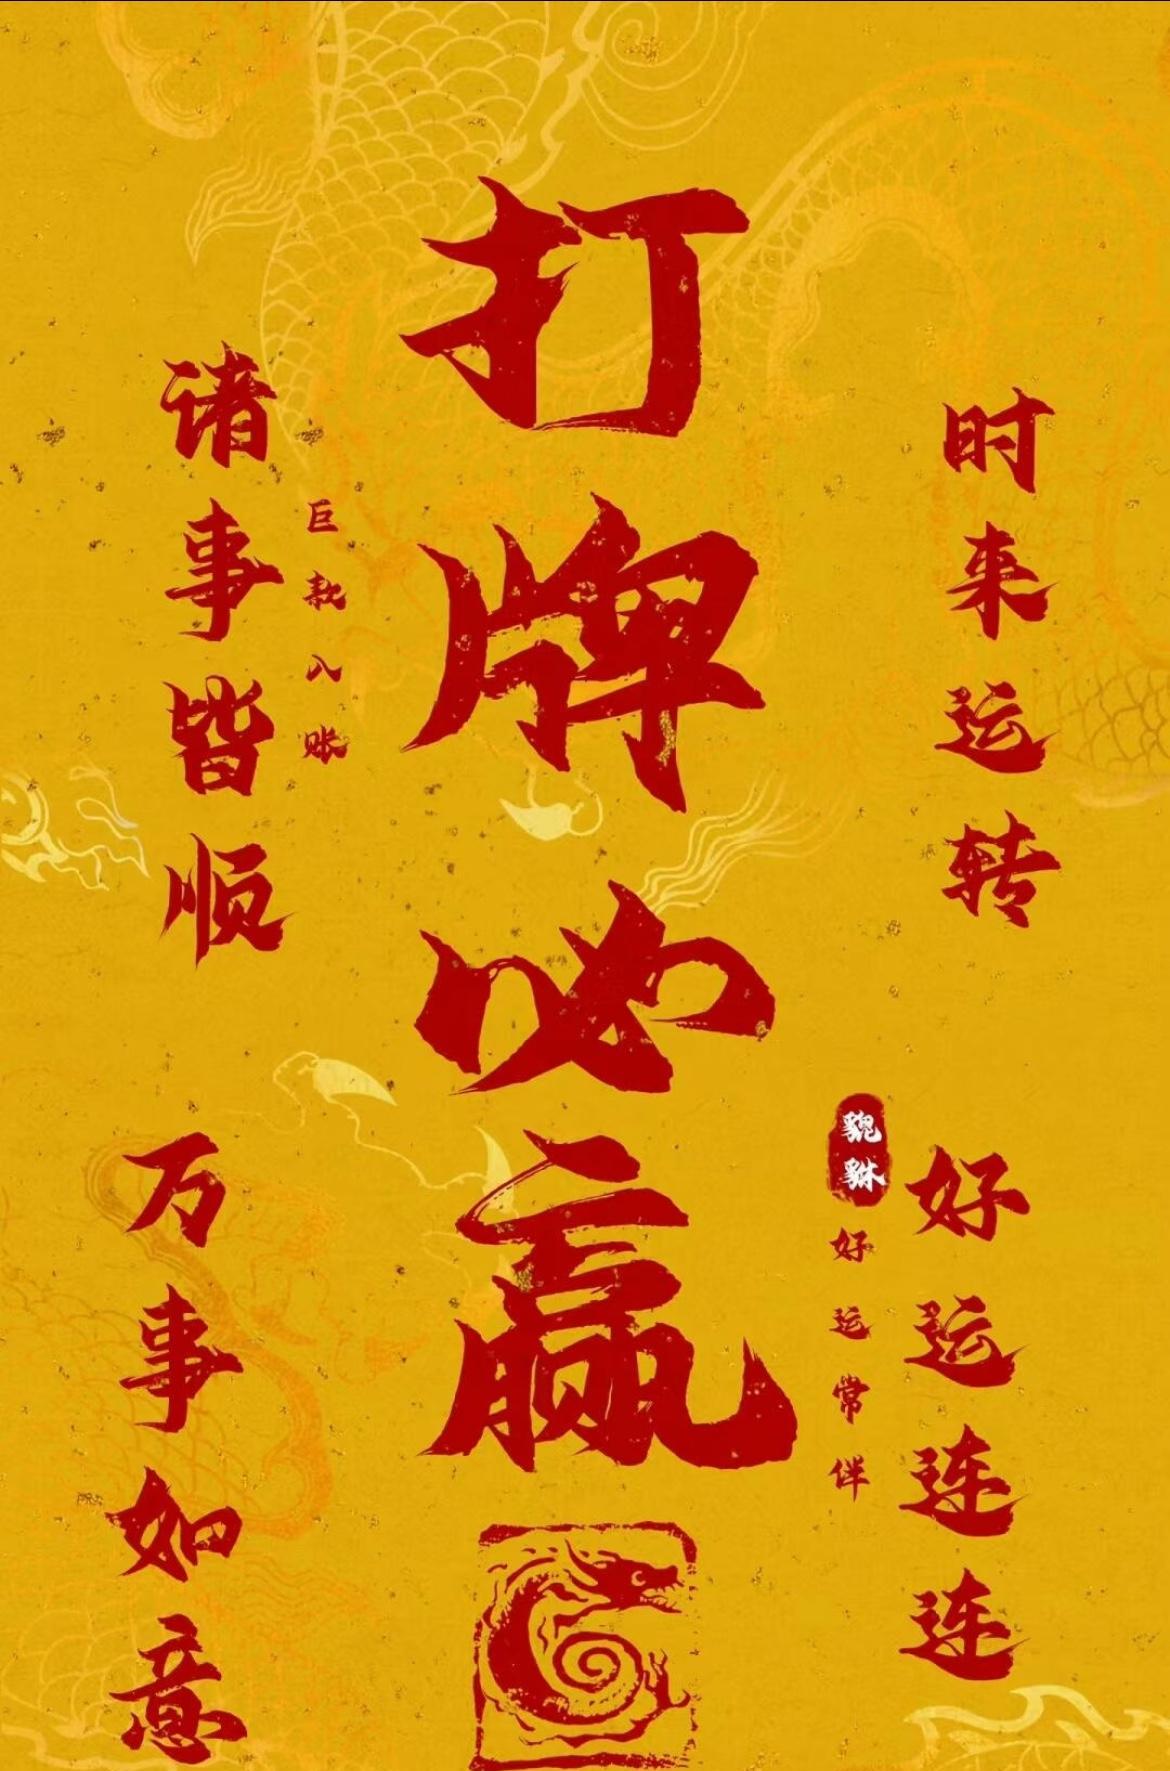 打牌必赢
时来运转
好运连连
貔貅
好运常伴
诸事皆顺
巨款入账
万事如意